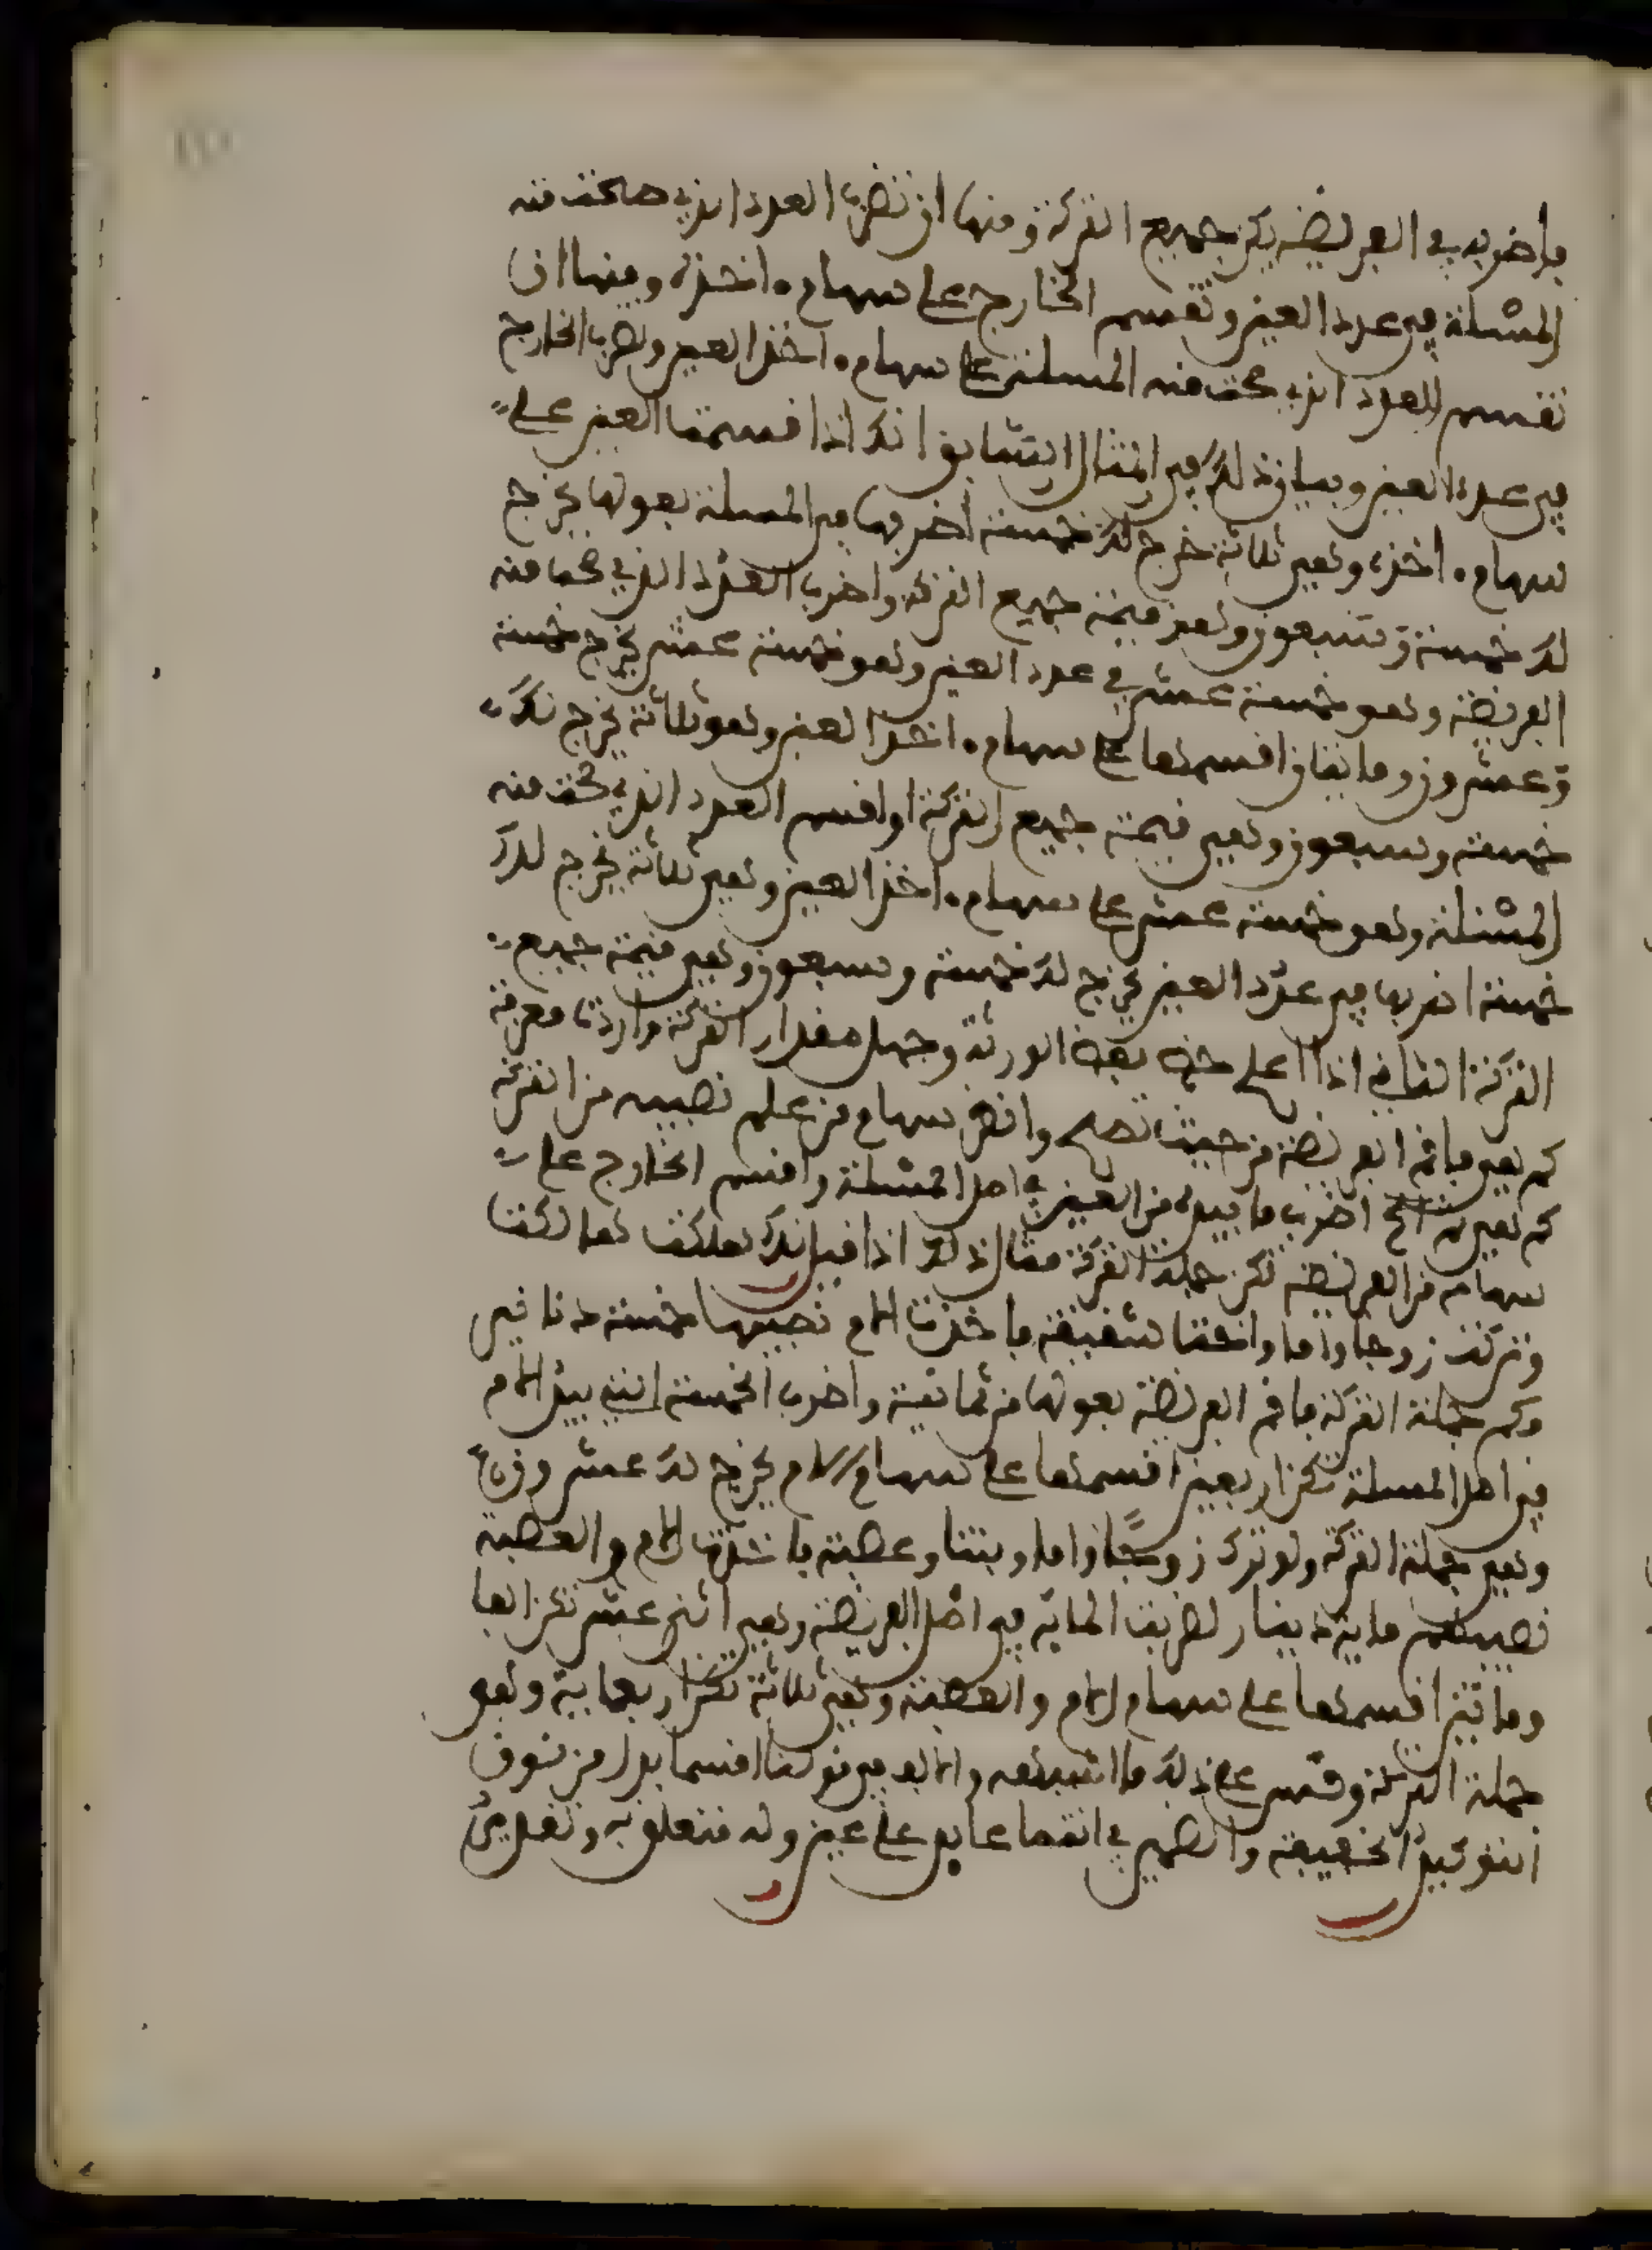 فاضربه في الفريضة يكن جميع التركة ومنها ان تضرب العدد الذي صحت منه
المسئلة في عدد العين وتقسم الخارج على سهام ءاخذه ومنها ان
تقسم العدد الذي صحت منه المسئلة على سهام ءاخذ العين وتضرب الخارج
في عدد العين وبيان ذلك في المثال السابق انك اذا قسمت العين على
سهام ءاخذه وهي ثلاثة خرج لك خمسة اضربها في المسئلة بعولها يخرج
لك خمسة وسبعون وهو قيمة جميع التركة واضرب العدد الذي صحت منه
الفريضة وهو خمسة عشر في عدد العين وهو خمسة عشر يخرج خمسة
وعشرون ومايتان اقسمها على سهام ءاخذ العين وهو ثلاثة يخرج لك
خمسة وسبعون وهي قيمة جميع التركة او اقسم العدد الذي صحت منه
المسئلة وهو خمسة عشر على سهام ءاخذ العين وهي ثلاثة يخرج لك
خمسة اضربها في عدد العين يخرج لك خمسة وسبعون وهي قيمة جميع
التركة الثاني اذا علم حظ بعض الورثة وجهل مقدار التركة واردت معرفة
كم هي فاقم الفريضة من حيث تصح وانظر سهام من علم نصيبه من التركة
كم هي اضرب ما بيده من العين في اصل المسئلة واقسم الخارج على
سهامه من الفريضة تكن جملة التركة مثال ذلك اذا قيل لك هلكت هالكة
وتركت زوجا واما واختا شقيقة فاخذت الام نصيبها خمسة دنانير
وكم جملة التركة فاقم الفريضة بعولها من ثمانية واضرب الخمسة التي بيد الام
في اصل المسئلة تكن اربعين اقسمها على سهام الام يخرج لك عشرون
وهي جملة التركة ولو ترك زوجا واما وبنتا وعصبة فاخذت الام والعصبة
نصيبهم ماية دينار لضربت الماية في اصل الفريضة وهي اثني عشر تكن الفا
ومائتين اقسمها على سهام الام والعصبة وهي ثلاثة تكن اربعماية وهو
جملة التركة وقس على ذلك ما اشبهه والالف في قولنا اقسما بدل من نون
التوكيد الخفيفة والضمير في انتما عايد على عين وله متعلق به وتقديم